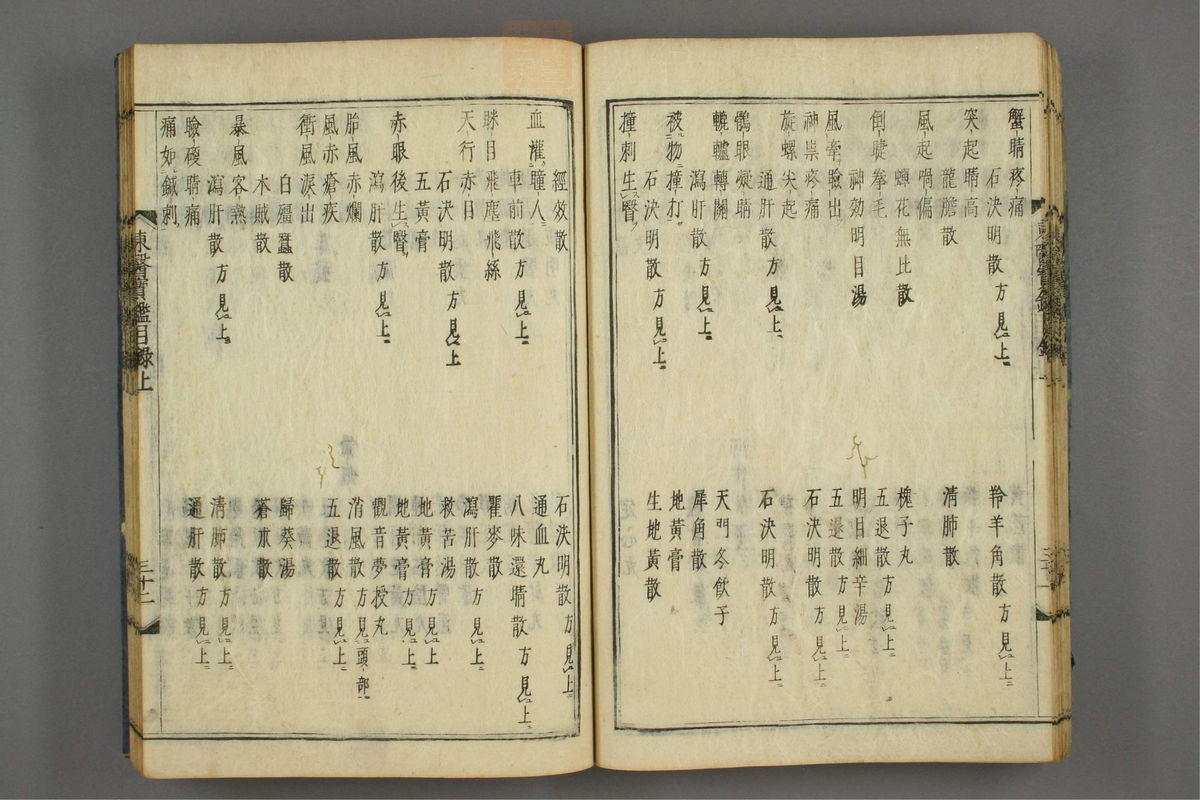 蟹睛疼痛
石決明散方見上
羚羊角散方見上
突起睛高
龍膽散
清肺散
風起喎偏
蟬花無比散
槐子丸
倒睫拳毛
五退散方見上
神効明目湯
明目細辛湯
風牽瞼出
五退散方見上
神祟疼痛
石決明散方見上
旋螺尖起
通肝散方見上
石決明散方見上
鶻眼凝睛
轆轤轉關
天門冬飲子
瀉肝散方見上
犀角散
被物撞打
地黃膏
石決明散方見上
生地黃散
撞刺生瞖
經效散
石決明散方見上
血灌瞳人
通血丸
車前散方見上
八味還睛散方見上
眯目飛塵飛絲
瞿麥散
天行赤目
瀉肝散方見上
石決明散方見上
救苦湯
五黃膏
地黃膏方見上
赤眼後生瞖
地黃膏方見上
瀉肝散方見上
觀音夢授丸
胎風赤爛
消風散方見頭部
風赤瘡疾
五退散方見上
衝風淚出
歸葵湯
白殭蠶散
蒼朮散
木賊散
暴風客熱
清肺散方見上
瀉肝散方見上
通肝散方見上
瞼硬睛痛
痛如鍼刺
東醫寶鑑目錄上
三十二